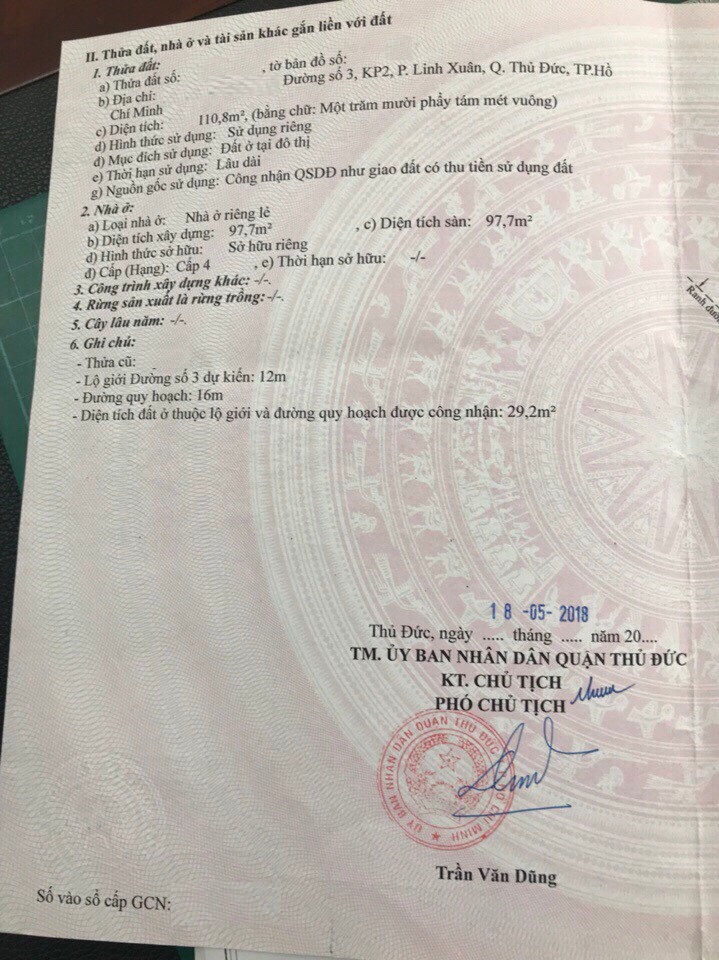 II. Thửa đất, nhà ở và tài sản khác gắn liền với đất
1. Thửa đất:
a) Thửa đất số: , tờ bản đồ số:
b) Địa chỉ: Đường số 3, KP2, P. Linh Xuân, Q. Thủ Đức, TP.Hồ
Chí Minh
c) Diện tích: 110,8m², (bằng chữ: Một trăm mười phẩy tám mét vuông)
d) Hình thức sử dụng: Sử dụng riêng
đ) Mục đích sử dụng: Đất ở tại đô thị
e) Thời hạn sử dụng: Lâu dài
g) Nguồn gốc sử dụng: Công nhận QSDĐ như giao đất có thu tiền sử dụng đất
2. Nhà ở:
a) Loại nhà ở: Nhà ở riêng lẻ
b) Diện tích xây dựng: 97,7m² , c) Diện tích sàn: 97,7m²
d) Hình thức sở hữu: Sở hữu riêng
đ) Cấp (Hạng): Cấp 4 , e) Thời hạn sở hữu: -/-
3. Công trình xây dựng khác: -/-.
4. Rừng sản xuất là rừng trồng: -/-.
5. Cây lâu năm: -/-.
6. Ghi chú:
- Thửa cũ:
- Lộ giới Đường số 3 dự kiến: 12m
- Đường quy hoạch: 16m
- Diện tích đất ở thuộc lộ giới và đường quy hoạch được công nhận: 29,2m²
Ranh
18 -05- 2018
Thủ Đức, ngày ..... tháng ..... năm 20....
TM. ỦY BAN NHÂN DÂN QUẬN THỦ ĐỨC
KT. CHỦ TỊCH
PHÓ CHỦ TỊCH
ỦY BAN NHÂN DÂN QUẬN THỦ ĐỨC
CHÍ MINH
Trần Văn Dũng
Số vào sổ cấp GCN: